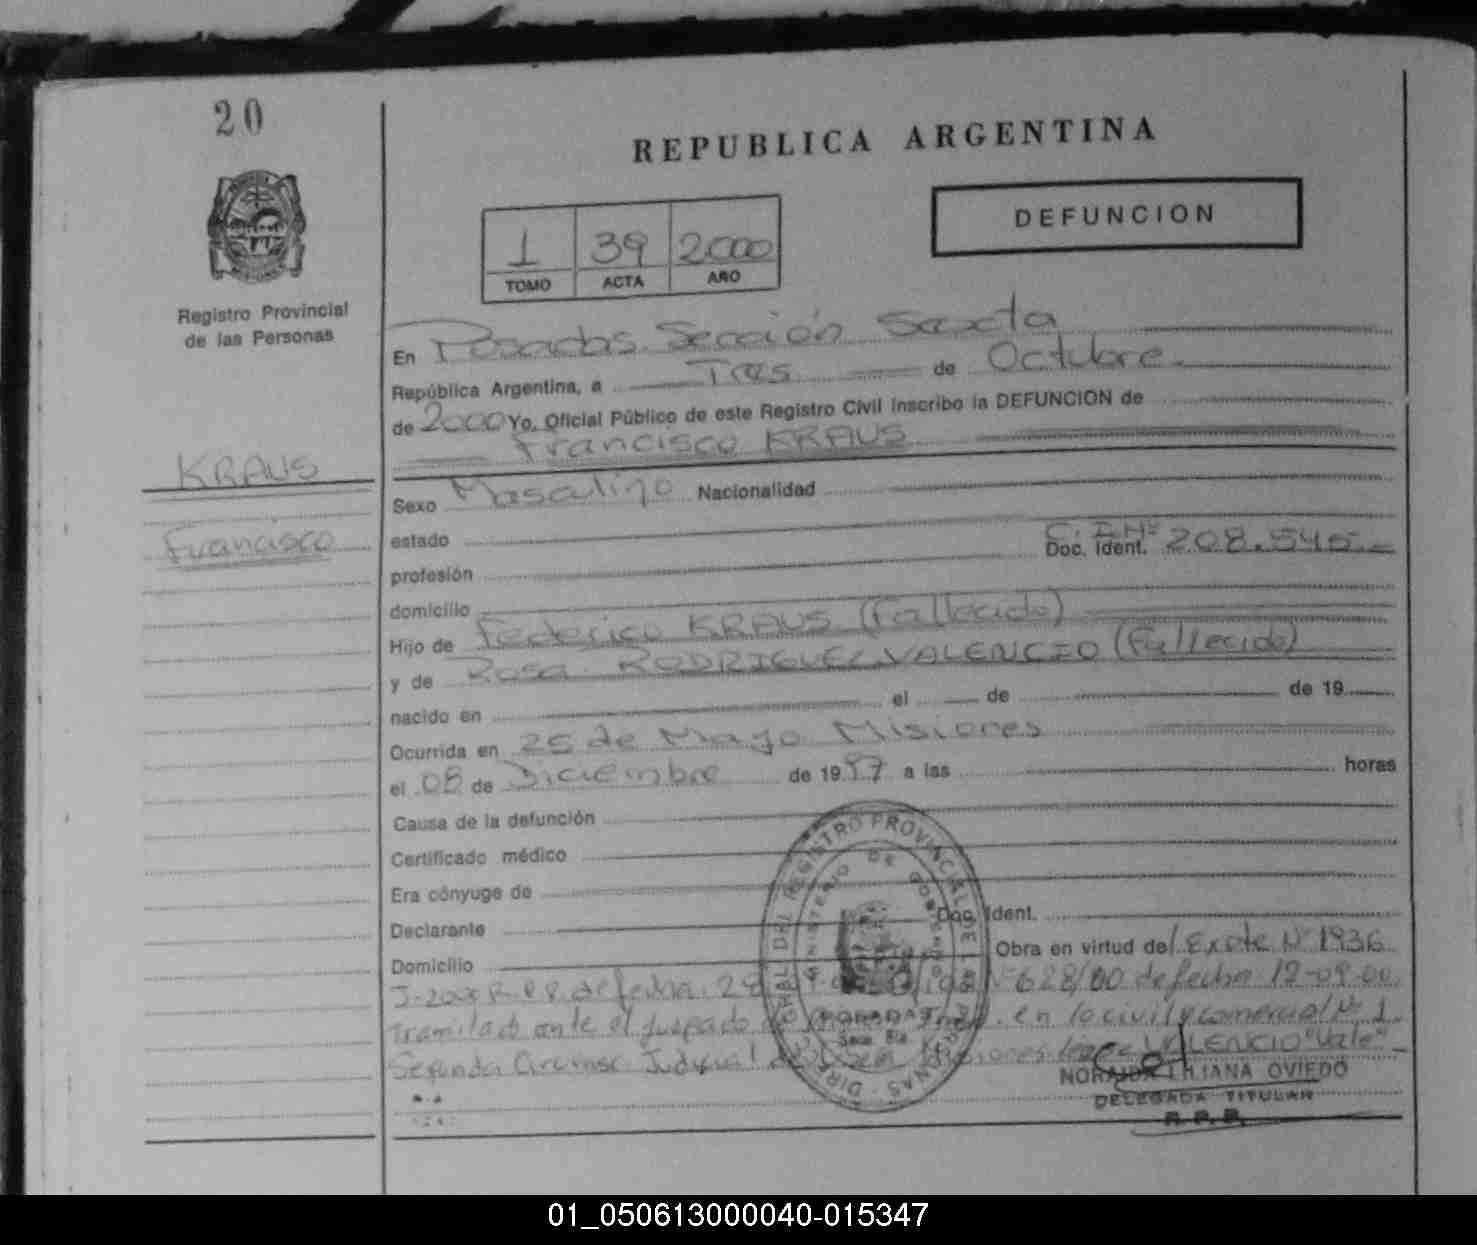 20
REPUBLICA ARGENTINA
DEFUNCION
1 39 2000
TOMO ACTA AÑO
Registro Provincial
de las Personas
En Posadas Sección Sexta
República Argentina, a Tres de Octubre
de 2000 Yo, Oficial Público de este Registro Civil inscribo la DEFUNCION de
Francisco KRAUS
KRAUS
Francisco
Sexo Masculino Nacionalidad
estado
C.I.Nº
Doc. Ident. 208.545
profesión
domicilio
Hijo de Federico KRAUS (Fallecido)
y de Rosa RODRIGUEZ VALENCIO (Fallecido)
nacido en el de de 19
Ocurrida en 25 de Mayo Misiones
el 08 de Diciembre de 1997 a las horas
Causa de la defunción
Certificado médico
Era cónyuge de
Declarante Doc. Ident.
Domicilio Obra en virtud del Expte Nº 1936
de fecha 28 Nº 628/00 de fecha 12-09-00
Tramitado ante el Juzgado en lo civil y comercial Nº 1
Segunda Circunsc. Judicial Misiones VALENCIO "Vale"
DIRECCION GENERAL DEL REGISTRO PROVINCIAL DE LAS PERSONAS
MINISTERIO DE GOBIERNO
POSADAS
Secc. 6ta
NORAIDA LILIANA OVIEDO
DELEGADA TITULAR
R. P. P.
01_050613000040-015347